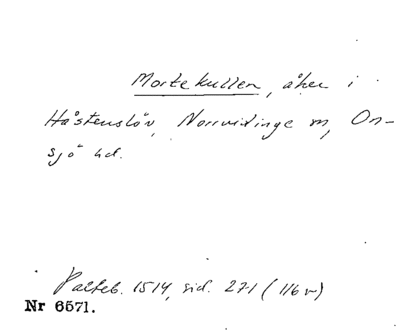 Mortekullen, åker i
Håstenslöv, Norrvidinge sn, On-
sjö hd.
Palteb. 1514, sid. 271 (116 v)
Nr 6571.